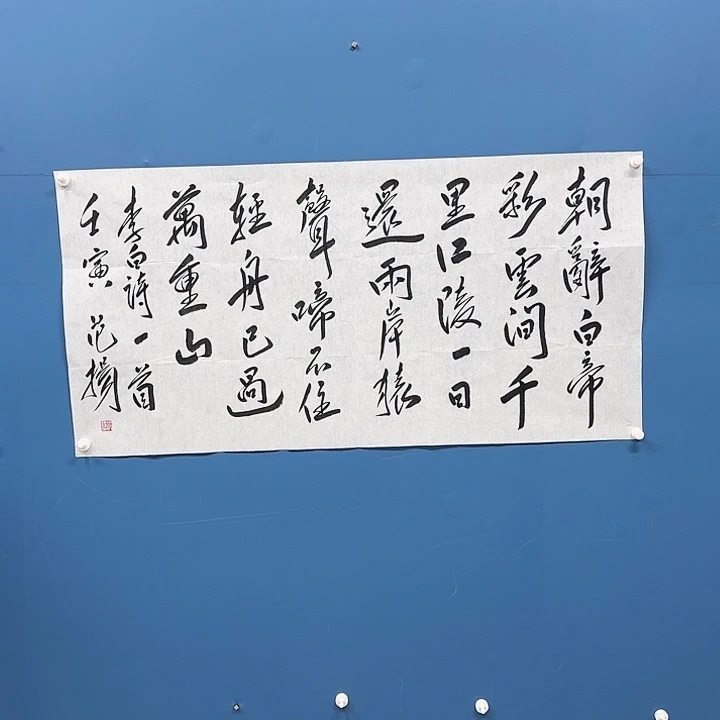 朝辭白帝
彩雲間千
里江陵一日
還兩岸猿
聲啼不住
輕舟已過
萬重山
李白詩一首
壬寅 范揚